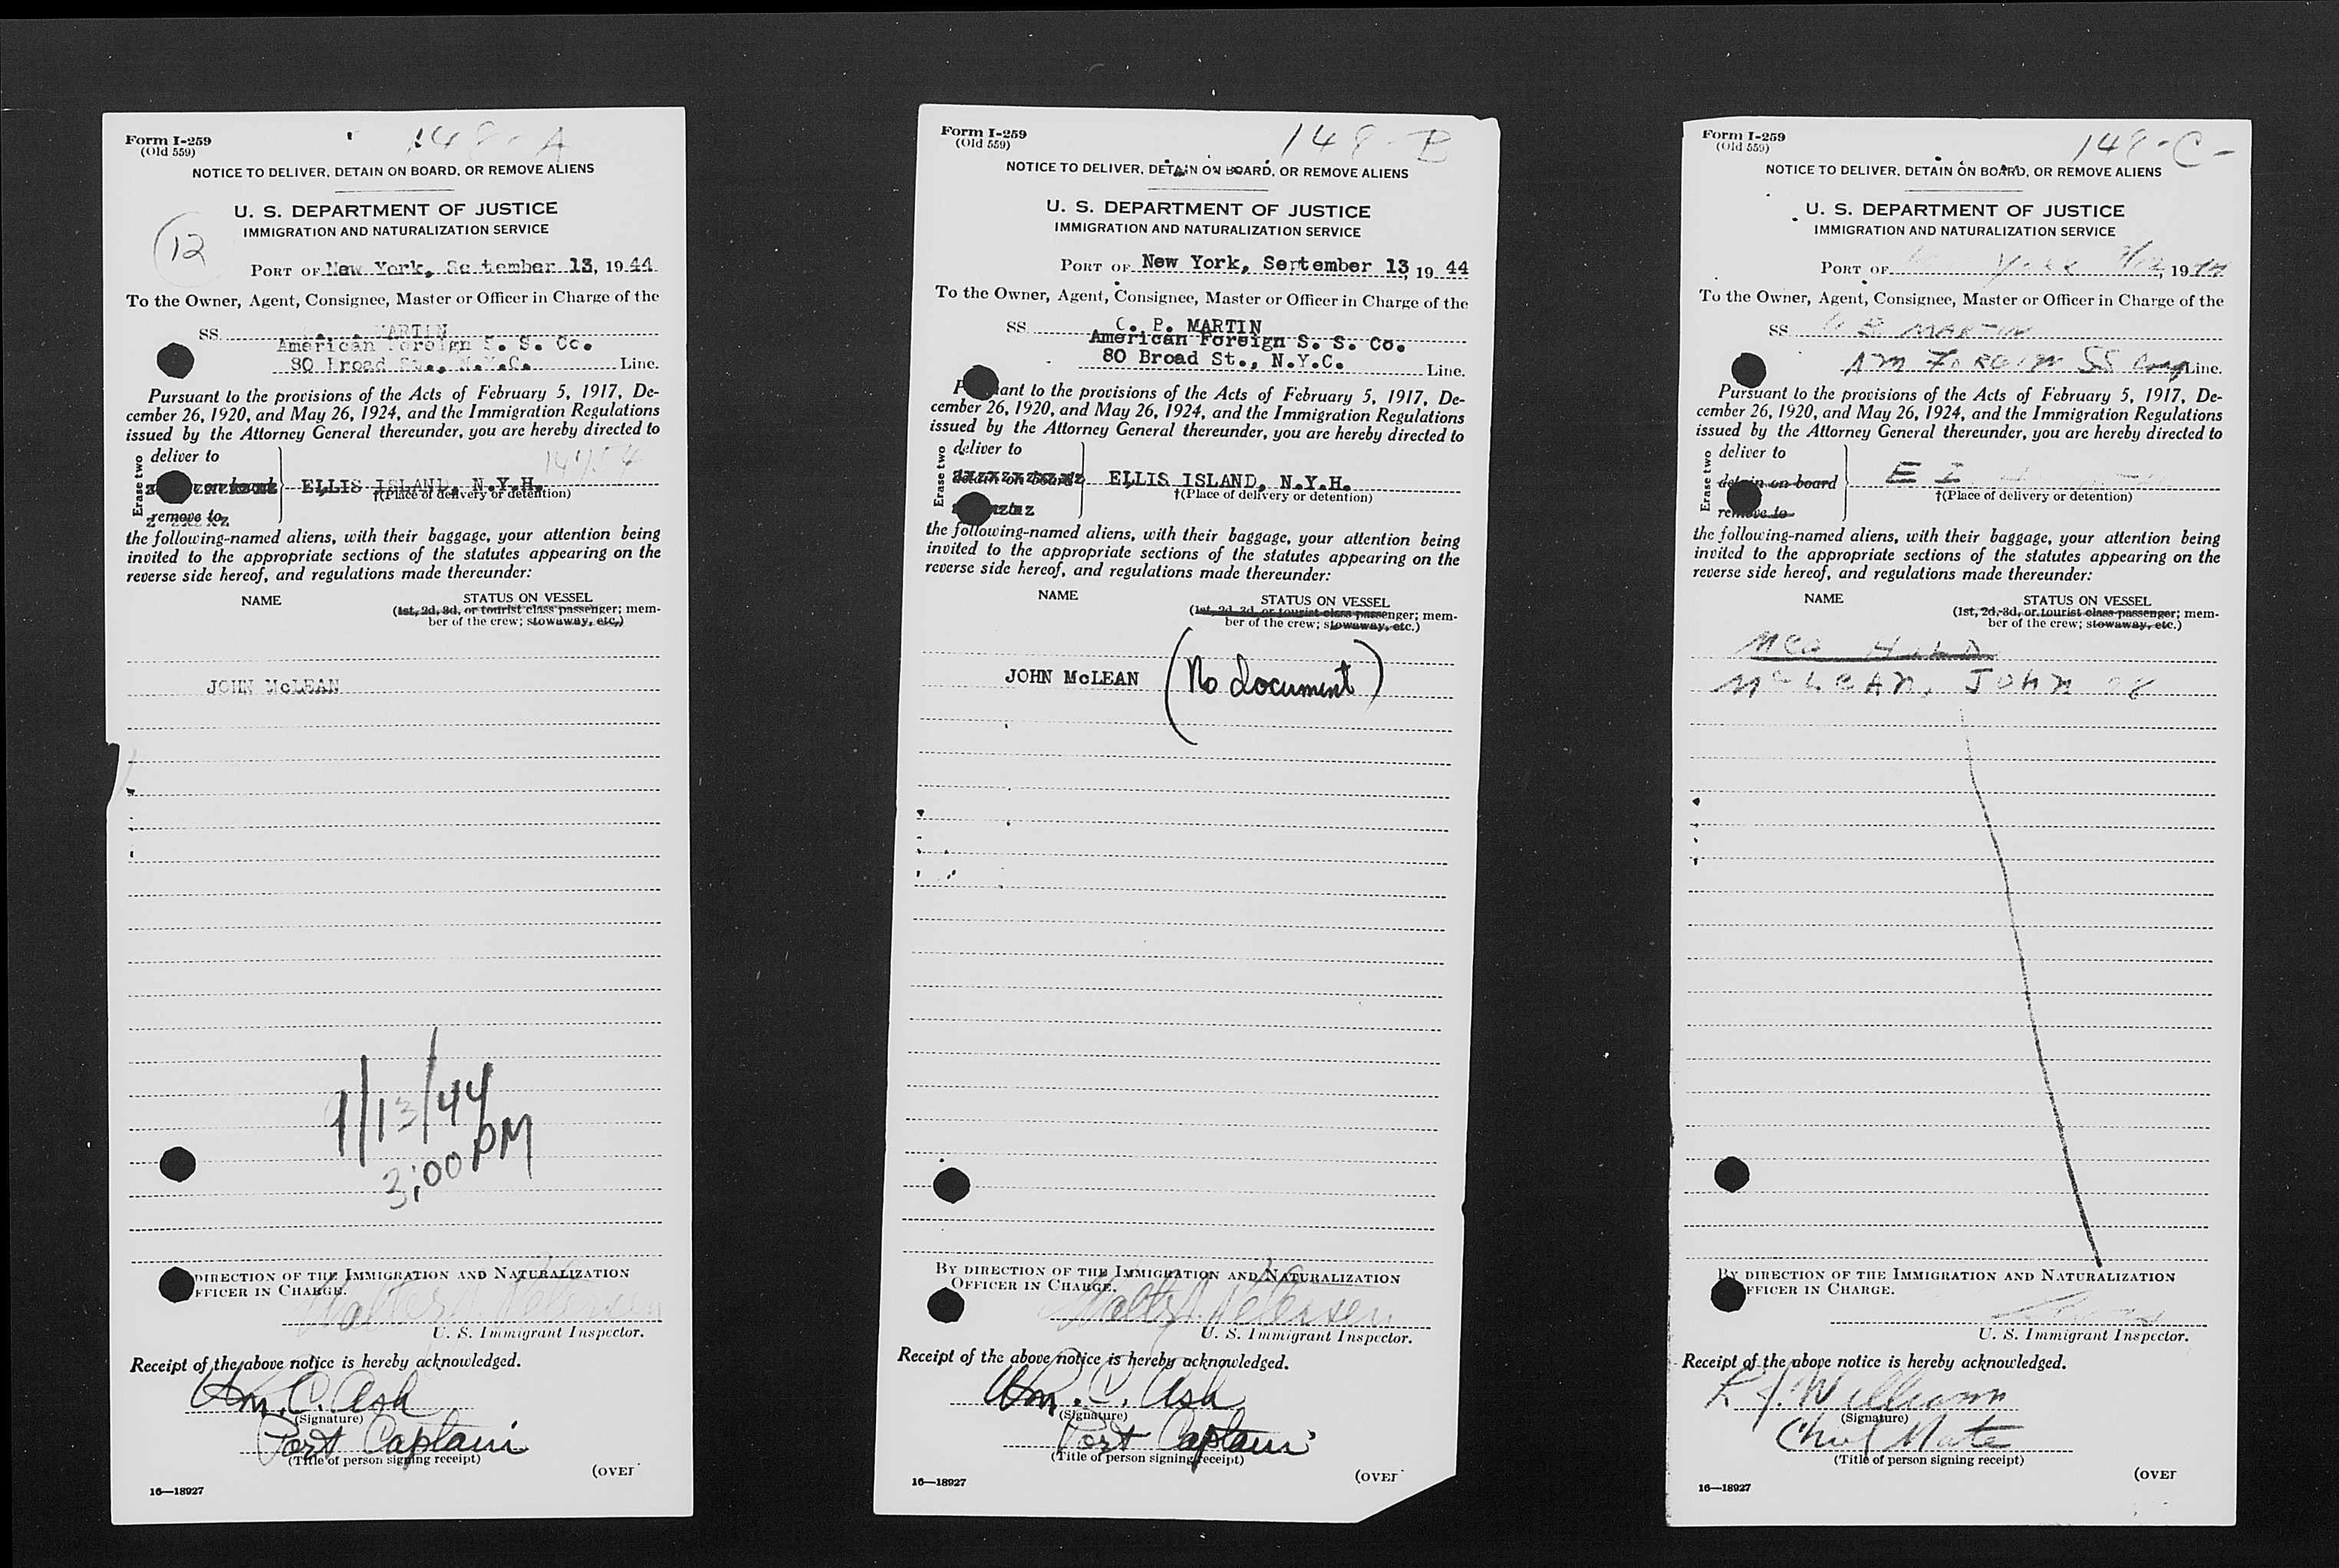 Form I-259
(Old 559)
148-A
NOTICE TO DELIVER, DETAIN ON BOARD, OR REMOVE ALIENS
U. S. DEPARTMENT OF JUSTICE
IMMIGRATION AND NATURALIZATION SERVICE
12
PORT OF New York, September 13, 1944
To the Owner, Agent, Consignee, Master or Officer in Charge of the
SS MARTIN
American Foreign S. S. Co.
80 Broad St., N.Y.C. Line.
Pursuant to the provisions of the Acts of February 5, 1917, De-
cember 26, 1920, and May 26, 1924, and the Immigration Regulations
issued by the Attorney General thereunder, you are hereby directed to
Erase two
deliver to
on board
remove to
ELLIS ISLAND, N.Y.H.
†(Place of delivery or detention)
the following-named aliens, with their baggage, your attention being
invited to the appropriate sections of the statutes appearing on the
reverse side hereof, and regulations made thereunder:
NAME
STATUS ON VESSEL
(1st, 2d, 3d, or tourist class passenger; mem-
ber of the crew; stowaway, etc.)
JOHN McLEAN
9/13/44
3:00 PM
DIRECTION OF THE IMMIGRATION AND NATURALIZATION
FFICER IN CHARGE.
Walter J. Petersen
U. S. Immigrant Inspector.
Receipt of the above notice is hereby acknowledged.
Wm. C. Ash
(Signature)
Port Captain
(Title of person signing receipt)
16—18927
(OVER
Form I-259
(Old 559)
148-B
NOTICE TO DELIVER, DETAIN ON BOARD, OR REMOVE ALIENS
U. S. DEPARTMENT OF JUSTICE
IMMIGRATION AND NATURALIZATION SERVICE
PORT OF New York, September 13, 1944
To the Owner, Agent, Consignee, Master or Officer in Charge of the
SS C. P. MARTIN
American Foreign S. S. Co.
80 Broad St., N.Y.C. Line.
P ant to the provisions of the Acts of February 5, 1917, De-
cember 26, 1920, and May 26, 1924, and the Immigration Regulations
issued by the Attorney General thereunder, you are hereby directed to
Erase two
deliver to
detain on board
ELLIS ISLAND, N.Y.H.
†(Place of delivery or detention)
the following-named aliens, with their baggage, your attention being
invited to the appropriate sections of the statutes appearing on the
reverse side hereof, and regulations made thereunder:
NAME
STATUS ON VESSEL
(1st, 2d, 3d, or tourist class passenger; mem-
ber of the crew; stowaway, etc.)
JOHN McLEAN (No document)
BY DIRECTION OF THE IMMIGRATION AND NATURALIZATION
OFFICER IN CHARGE.
Walter J. Petersen
U. S. Immigrant Inspector.
Receipt of the above notice is hereby acknowledged.
Wm. C. Ash
(Signature)
Port Captain
(Title of person signing receipt)
16—18927
(OVER
Form I-259
(Old 559)
148-C-
NOTICE TO DELIVER, DETAIN ON BOARD, OR REMOVE ALIENS
U. S. DEPARTMENT OF JUSTICE
IMMIGRATION AND NATURALIZATION SERVICE
PORT OF York 1944
To the Owner, Agent, Consignee, Master or Officer in Charge of the
SS MARTIN
Am FOREIGN SS Line.
Pursuant to the provisions of the Acts of February 5, 1917, De-
cember 26, 1920, and May 26, 1924, and the Immigration Regulations
issued by the Attorney General thereunder, you are hereby directed to
Erase two
deliver to
detain on board
remove to
E I
†(Place of delivery or detention)
the following-named aliens, with their baggage, your attention being
invited to the appropriate sections of the statutes appearing on the
reverse side hereof, and regulations made thereunder:
NAME
STATUS ON VESSEL
(1st, 2d, 3d, or tourist class passenger; mem-
ber of the crew; stowaway, etc.)
McLEAN, JOHN
BY DIRECTION OF THE IMMIGRATION AND NATURALIZATION
FFICER IN CHARGE.
U. S. Immigrant Inspector.
Receipt of the above notice is hereby acknowledged.
(Signature)
Chief Mate
(Title of person signing receipt)
16—18927
(OVER